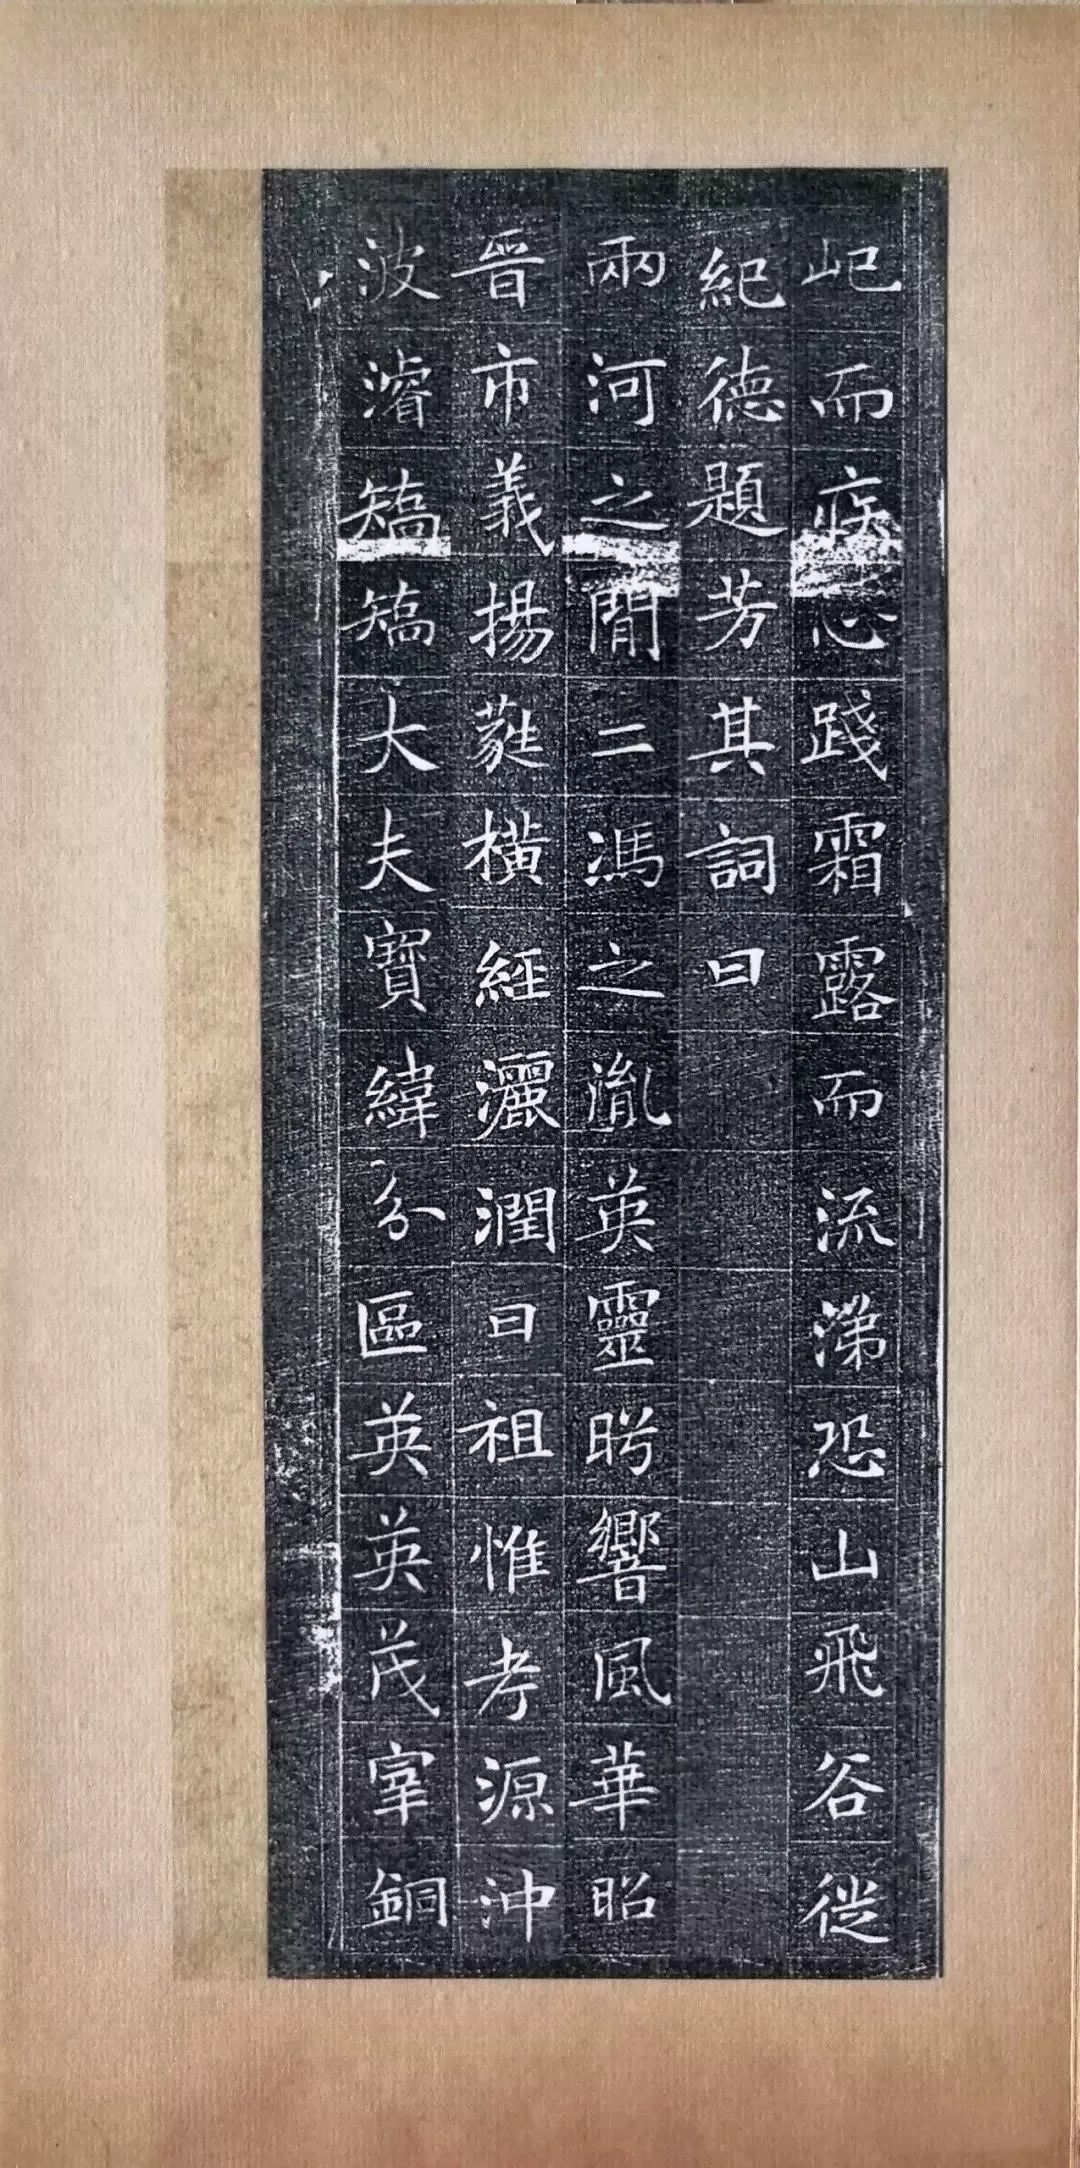 屺而疚心踐霜露而流涕恐山飛谷從
紀德題芳其詞曰
兩河之間二馮之胤英靈肹響風華昭
晉市義揚蕤橫經灑潤曰祖惟考源沖
波濬矯矯大夫寶緯分區英英茂宰銅